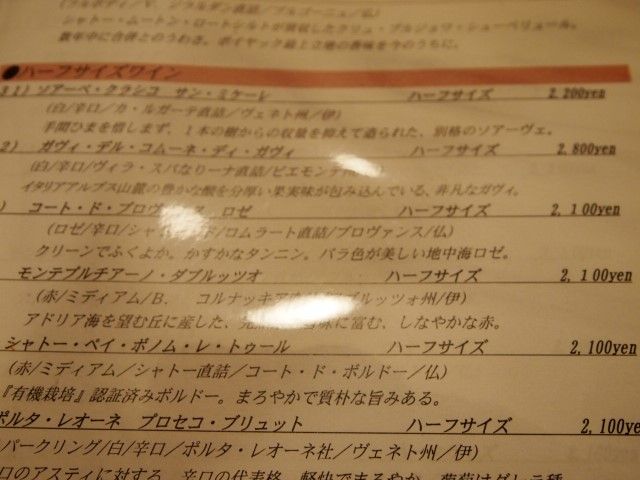 シャトー・ムートン・ロートシルトが買収したクリュ・ブルジョワ・シューペリュール。
数年中に合併とのうわさ。ポイヤック最上立地の香味を今のうちに。
●ハーフサイズワイン
31) ソアーベ・クラシコ サン・ミケーレ ハーフサイズ 2,200yen
(白/辛口/カ・ルガーテ直詰/ヴェネト州/伊)
手間ひまを惜しまず、1本の樹からの収量を抑えて造られた、別格のソアーヴェ。
2) ガヴィ・デル・コムーネ・ディ・ガヴィ ハーフサイズ 2,800yen
(白/辛口/ヴィラ・スパなりーナ直詰/ピエモンテ
イタリアアルプス山麓の豊かな酸を分厚い果実味が包み込んでいる、非凡なガヴィ。
) コート・ド・プロヴァンス ロゼ ハーフサイズ 2,100yen
(ロゼ/辛口/シャ ド/ロムラート直詰/プロヴァンス/仏)
クリーンでふくよか。かすかなタンニン。バラ色が美しい地中海ロゼ。
モンテプルチアーノ・ダブルッツオ ハーフサイズ 2,100yen
(赤/ミディアム/B. コルナッキア ブルッツォ州/伊)
アドリア海を望む丘に産した、 味に富む、しなやかな赤。
シャトー・ペイ・ボノム・レ・トゥール ハーフサイズ 2,100yen
(赤/ミディアム/シャトー直詰/コート・ド・ボルドー/仏)
『有機栽培』認証済みボルドー。まろやかで質朴な旨みある。
ポルタ・レオーネ プロセコ・ブリュット ハーフサイズ 2,100ye
パークリング/白/辛口/ポルタ・レオーネ社/ヴェネト州/伊)
口のアスティに対する、辛口の代表格。軽快でまろやか。